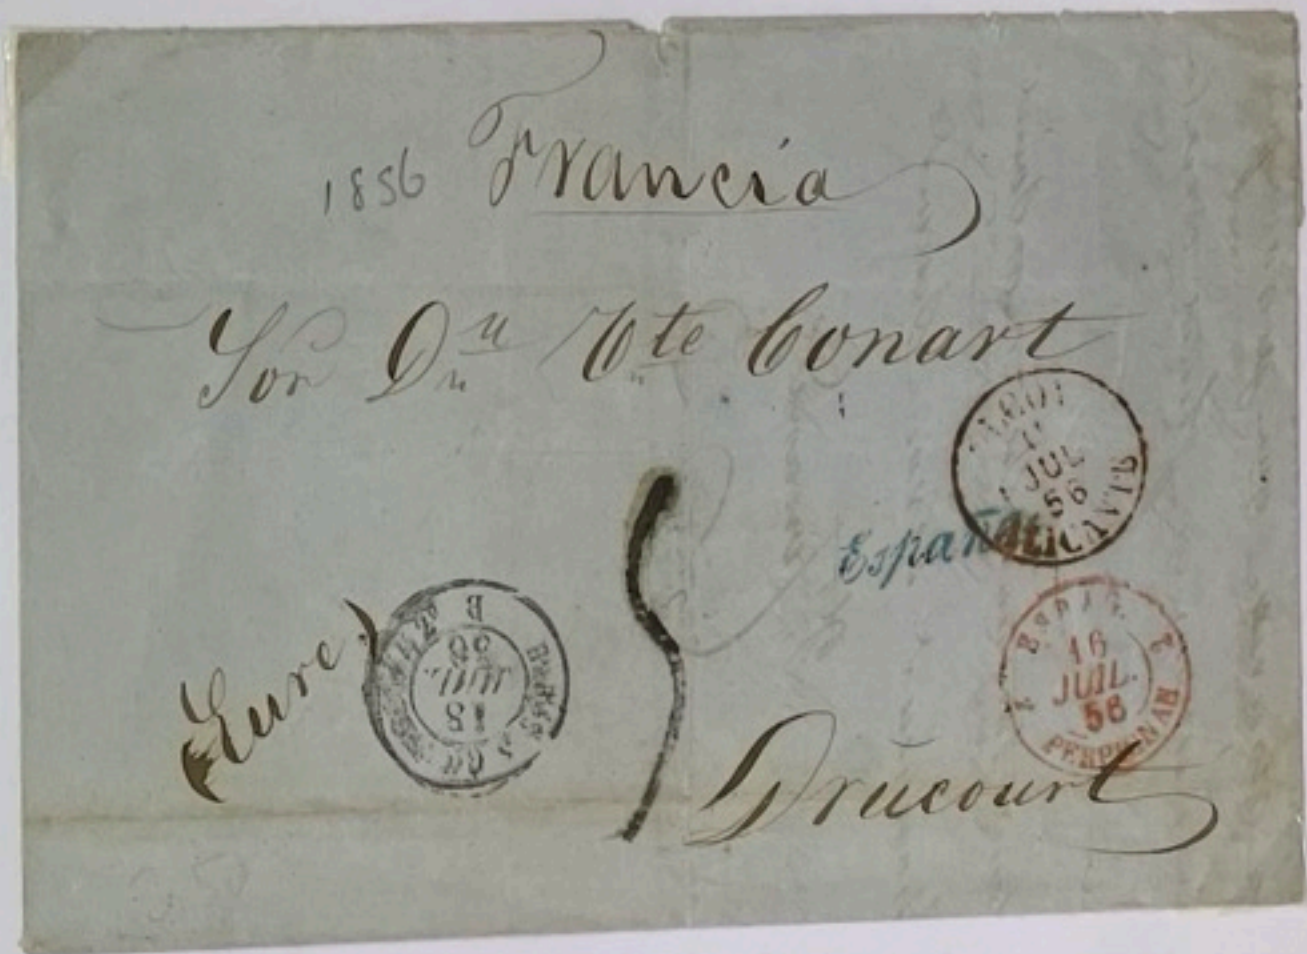 1856 Francia
Sor Dn Vte Conart
ALCOY
11
JUL
56
ALICANTE
España
ESPAG.
16
JUIL.
56
PERPIGNAN
2 2
(Eure)
B
18
JUIL.
56
5
Drucourt